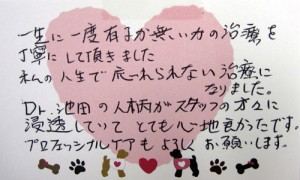 一生に一度有るか無いかの治療を
丁寧にして頂きました
私の人生で忘れられない治療に
なりました。
Dr.池田の人柄がスタッフの方々に
浸透していてとても心地良かったです。
プロフェッショナルケアもよろしくお願いします。